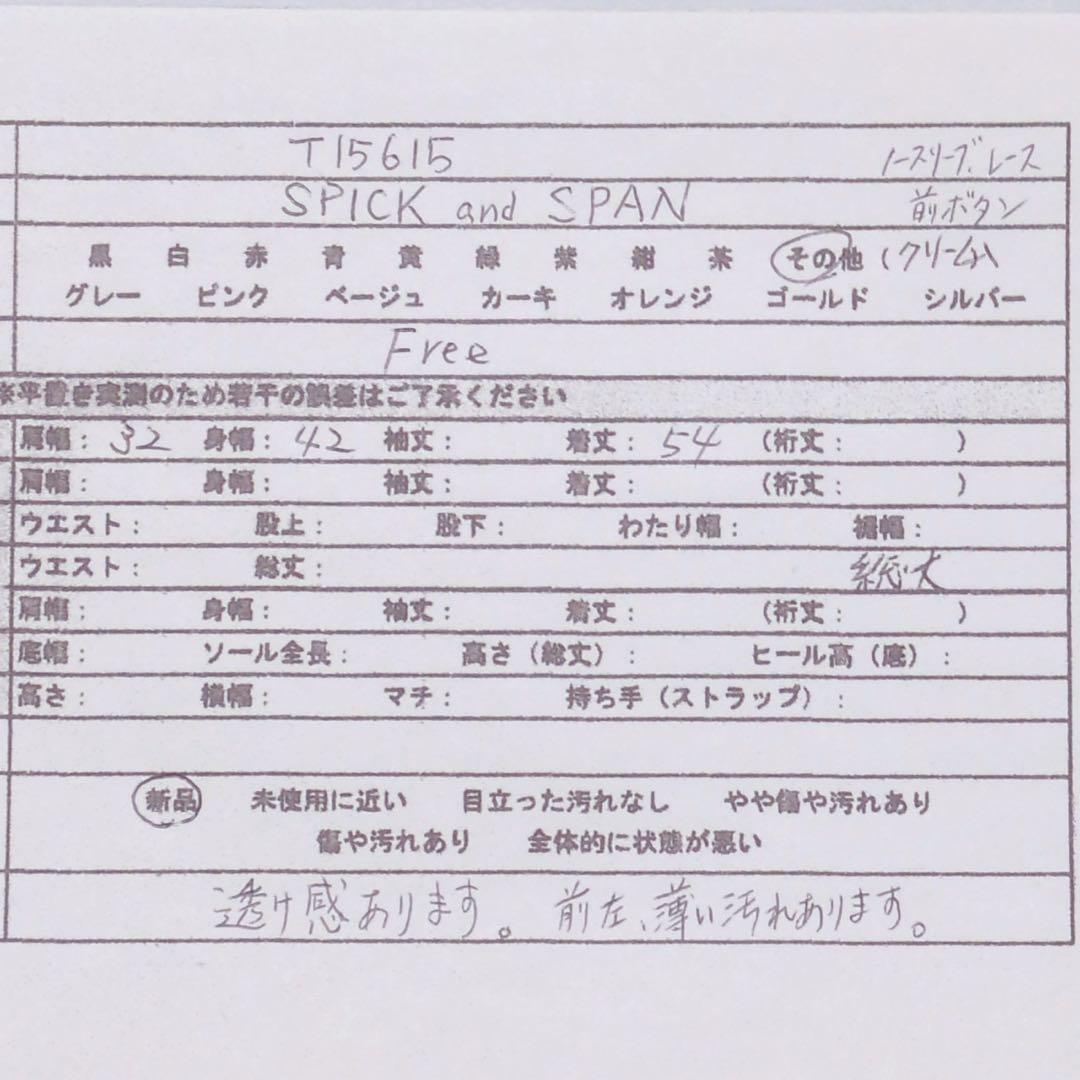 T15615 ノースリーブ、レース
SPICK and SPAN 前ボタン
黒 白 赤 青 黄 緑 紫 紺 茶 その他 (クリーム)
グレー ピンク ベージュ カーキ オレンジ ゴールド シルバー
Free
※平置き実測のため若干の誤差はご了承ください
肩幅: 32 身幅: 42 袖丈: 着丈: 54 (裄丈: )
肩幅: 身幅: 袖丈: 着丈: (裄丈: )
ウエスト: 股上: 股下: わたり幅: 裾幅:
ウエスト: 総丈: 紙大
肩幅: 身幅: 袖丈: 着丈: (裄丈: )
底幅: ソール全長: 高さ (総丈) : ヒール高 (底) :
高さ: 横幅: マチ: 持ち手 (ストラップ) :
新品 未使用に近い 目立った汚れなし やや傷や汚れあり
傷や汚れあり 全体的に状態が悪い
透け感あります。 前左、薄い汚れあります。